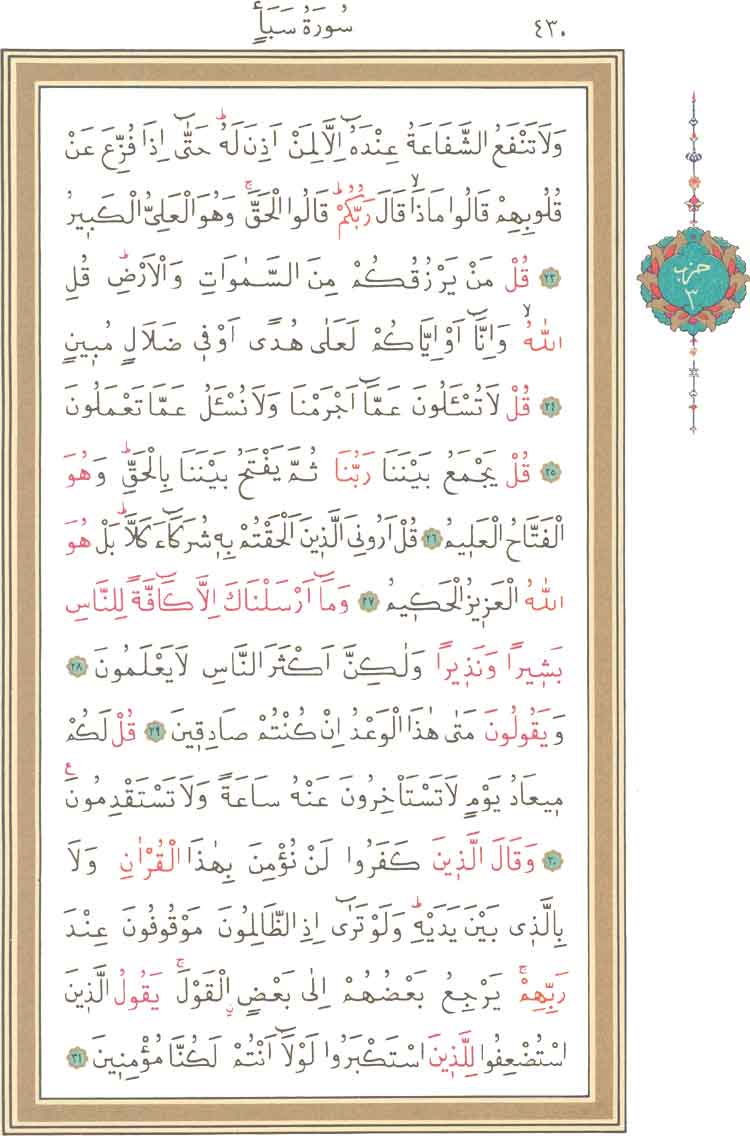 ٤٣٠
سُورَةُ سَبَأٍ
وَلَا تَنْفَعُ الشَّفَاعَةُ عِنْدَهُٓ اِلَّا لِمَنْ اَذِنَ لَهُۜ حَتّٰٓى اِذَا فُزِّعَ عَنْ
قُلُوبِهِمْ قَالُوا مَاذَاۙ قَالَ رَبُّكُمْۜ قَالُوا الْحَقَّۚ وَهُوَ الْعَلِيُّ الْكَب۪يرُ
﴿٢٣﴾ قُلْ مَنْ يَرْزُقُكُمْ مِنَ السَّمٰوَاتِ وَالْاَرْضِۜ قُلِ
اللّٰهُۙ وَاِنَّٓا اَوْ اِيَّاكُمْ لَعَلٰى هُدًى اَوْ ف۪ي ضَلَالٍ مُب۪ينٍ
﴿٢٤﴾ قُلْ لَا تُسْـَٔلُونَ عَمَّٓا اَجْرَمْنَا وَلَا نُسْـَٔلُ عَمَّا تَعْمَلُونَ
﴿٢٥﴾ قُلْ يَجْمَعُ بَيْنَنَا رَبُّنَا ثُمَّ يَفْتَحُ بَيْنَنَا بِالْحَقِّۜ وَهُوَ
الْفَتَّاحُ الْعَل۪يمُ ﴿٢٦﴾ قُلْ اَرُونِيَ الَّذ۪ينَ اَلْحَقْتُمْ بِه۪ شُرَكَٓاءَ كَلَّاۜ بَلْ هُوَ
اللّٰهُ الْعَز۪يزُ الْحَك۪يمُ ﴿٢٧﴾ وَمَٓا اَرْسَلْنَاكَ اِلَّا كَٓافَّةً لِلنَّاسِ
بَش۪يراً وَنَذ۪يراً وَلٰكِنَّ اَكْثَرَ النَّاسِ لَا يَعْلَمُونَ ﴿٢٨﴾
وَيَقُولُونَ مَتٰى هٰذَا الْوَعْدُ اِنْ كُنْتُمْ صَادِق۪ينَ ﴿٢٩﴾ قُلْ لَكُمْ
م۪يعَادُ يَوْمٍ لَا تَسْتَأْخِرُونَ عَنْهُ سَاعَةً وَلَا تَسْتَقْدِمُونَ ع
﴿٣٠﴾ وَقَالَ الَّذ۪ينَ كَفَرُوا لَنْ نُؤْمِنَ بِهٰذَا الْقُرْاٰنِ وَلَا
بِالَّذ۪ي بَيْنَ يَدَيْهِۜ وَلَوْ تَرٰٓى اِذِ الظَّالِمُونَ مَوْقُوفُونَ عِنْدَ
رَبِّهِمْۚ يَرْجِعُ بَعْضُهُمْ اِلٰى بَعْضٍۨ الْقَوْلَۚ يَقُولُ الَّذ۪ينَ
اسْتُضْعِفُوا لِلَّذ۪ينَ اسْتَكْبَرُوا لَوْلَٓا اَنْتُمْ لَكُنَّا مُؤْمِن۪ينَ ﴿٣١﴾
حزب
٣